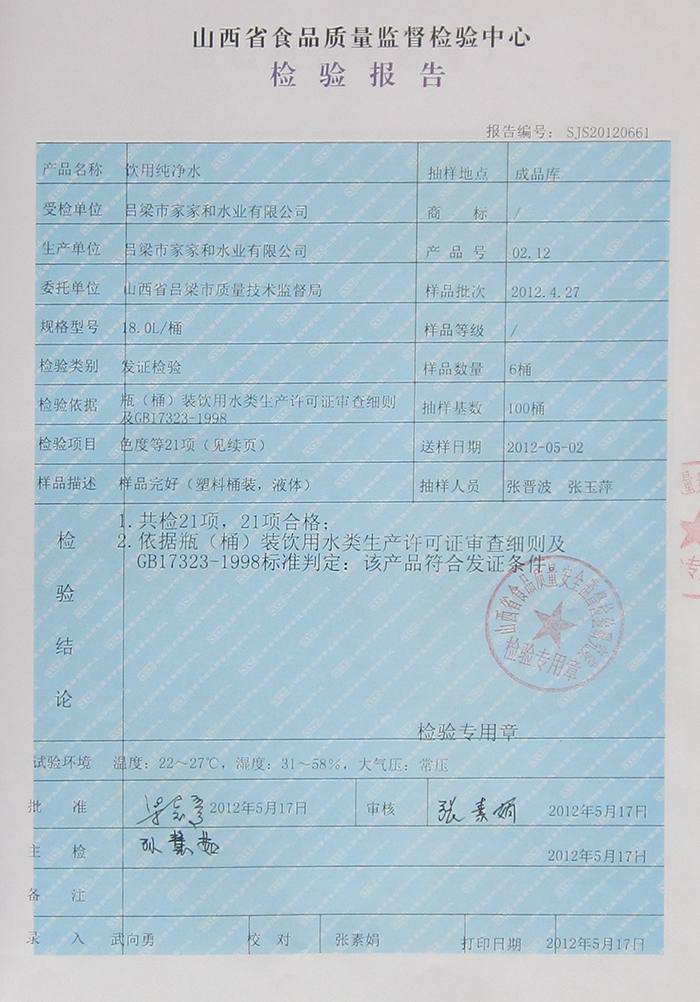 山西省食品质量监督检验中心
检验报告
报告编号： SJS20120661
产品名称 饮用纯净水 抽样地点 成品库
受检单位 吕梁市家家和水业有限公司 商 标 /
生产单位 吕梁市家家和水业有限公司 产 品 号 02.12
委托单位 山西省吕梁市质量技术监督局 样品批次 2012.4.27
规格型号 18.0L/桶 样品等级 /
检验类别 发证检验 样品数量 6桶
检验依据 瓶（桶）装饮用水类生产许可证审查细则
及GB17323-1998 抽样基数 100桶
检验项目 色度等21项（见续页） 送样日期 2012-05-02
样品描述 样品完好（塑料桶装，液体） 抽样人员 张晋波 张玉萍
检验结论
1. 共检21项，21项合格；
2. 依据瓶（桶）装饮用水类生产许可证审查细则及
GB17323-1998标准判定：该产品符合发证条件。
检验专用章
检验专用章
试验环境 温度：22～27℃，湿度：31～58%，大气压：常压
批 准 2012年5月17日 审核 张素娟 2012年5月17日
主 检 孙慧茹 2012年5月17日
备 注
录 入 武向勇 校 对 张素娟 打印日期 2012年5月17日